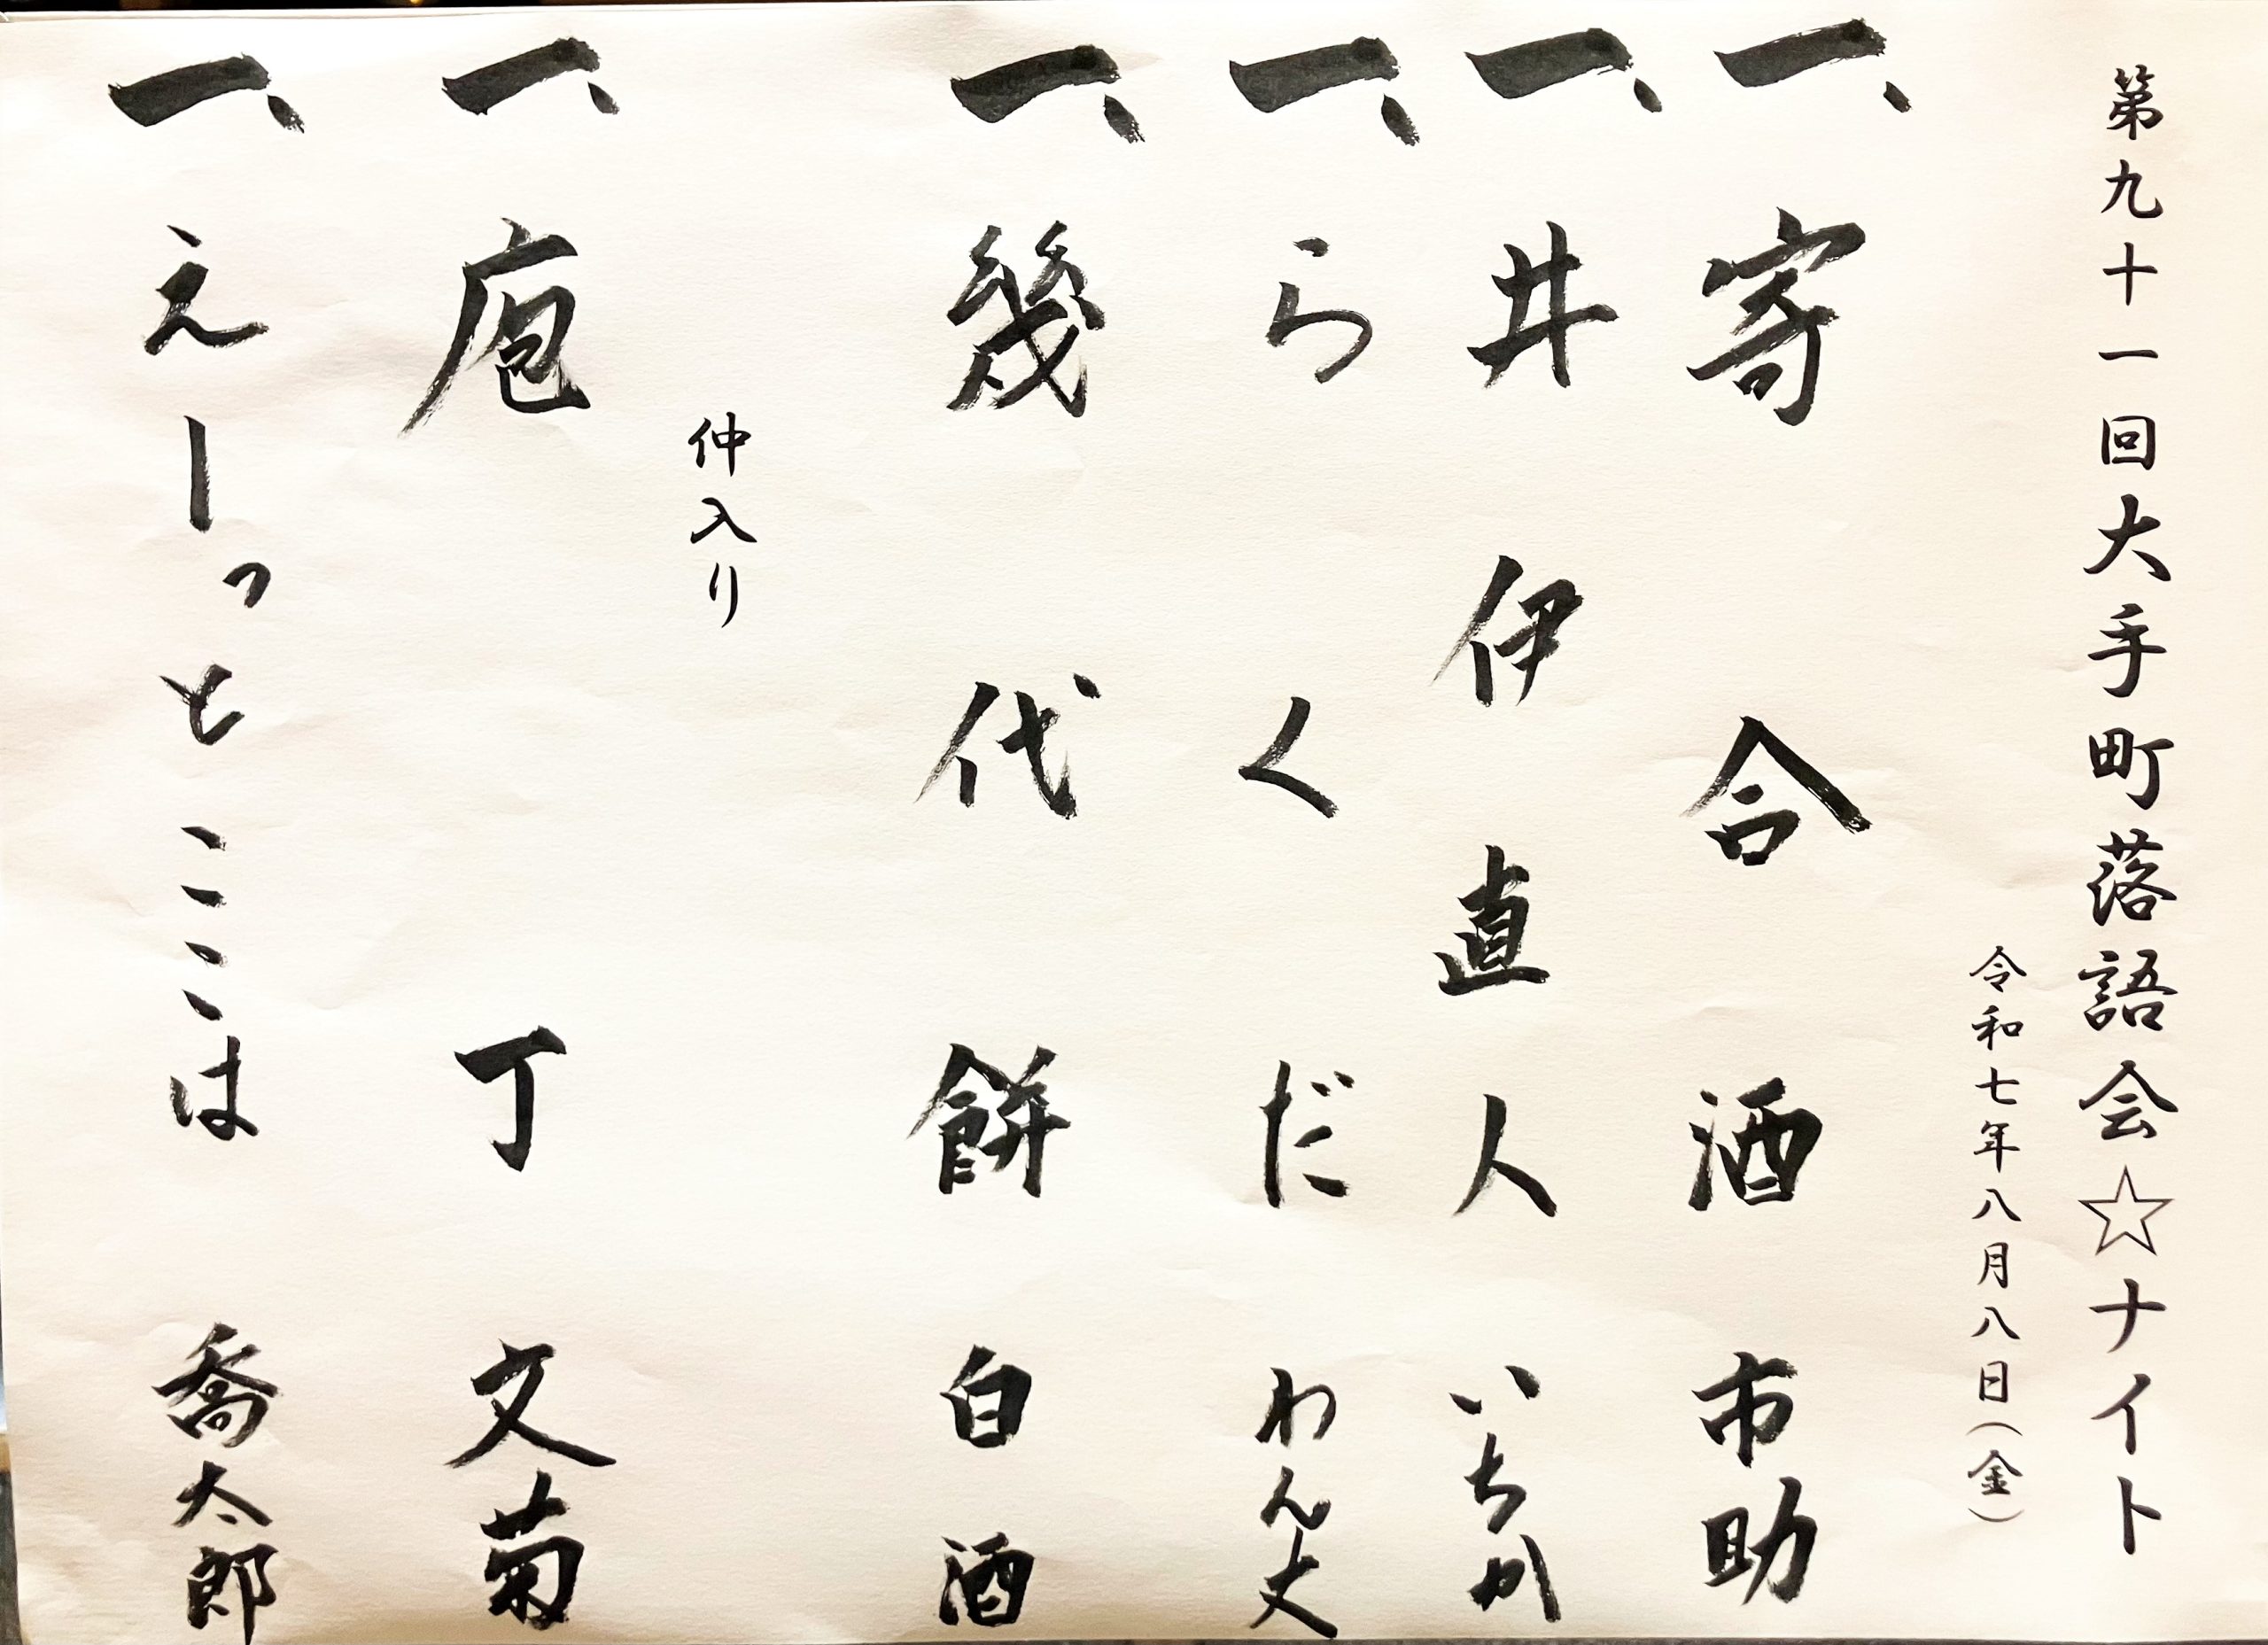 第九十一回大手町落語会☆ナイト
令和七年八月八日(金)
一、寄合酒 市助
一、井伊直人 いちか
一、らくだ わん丈
一、幾代餅 白酒
仲入り
一、庖丁 文菊
一、えーっとここは 喬太郎